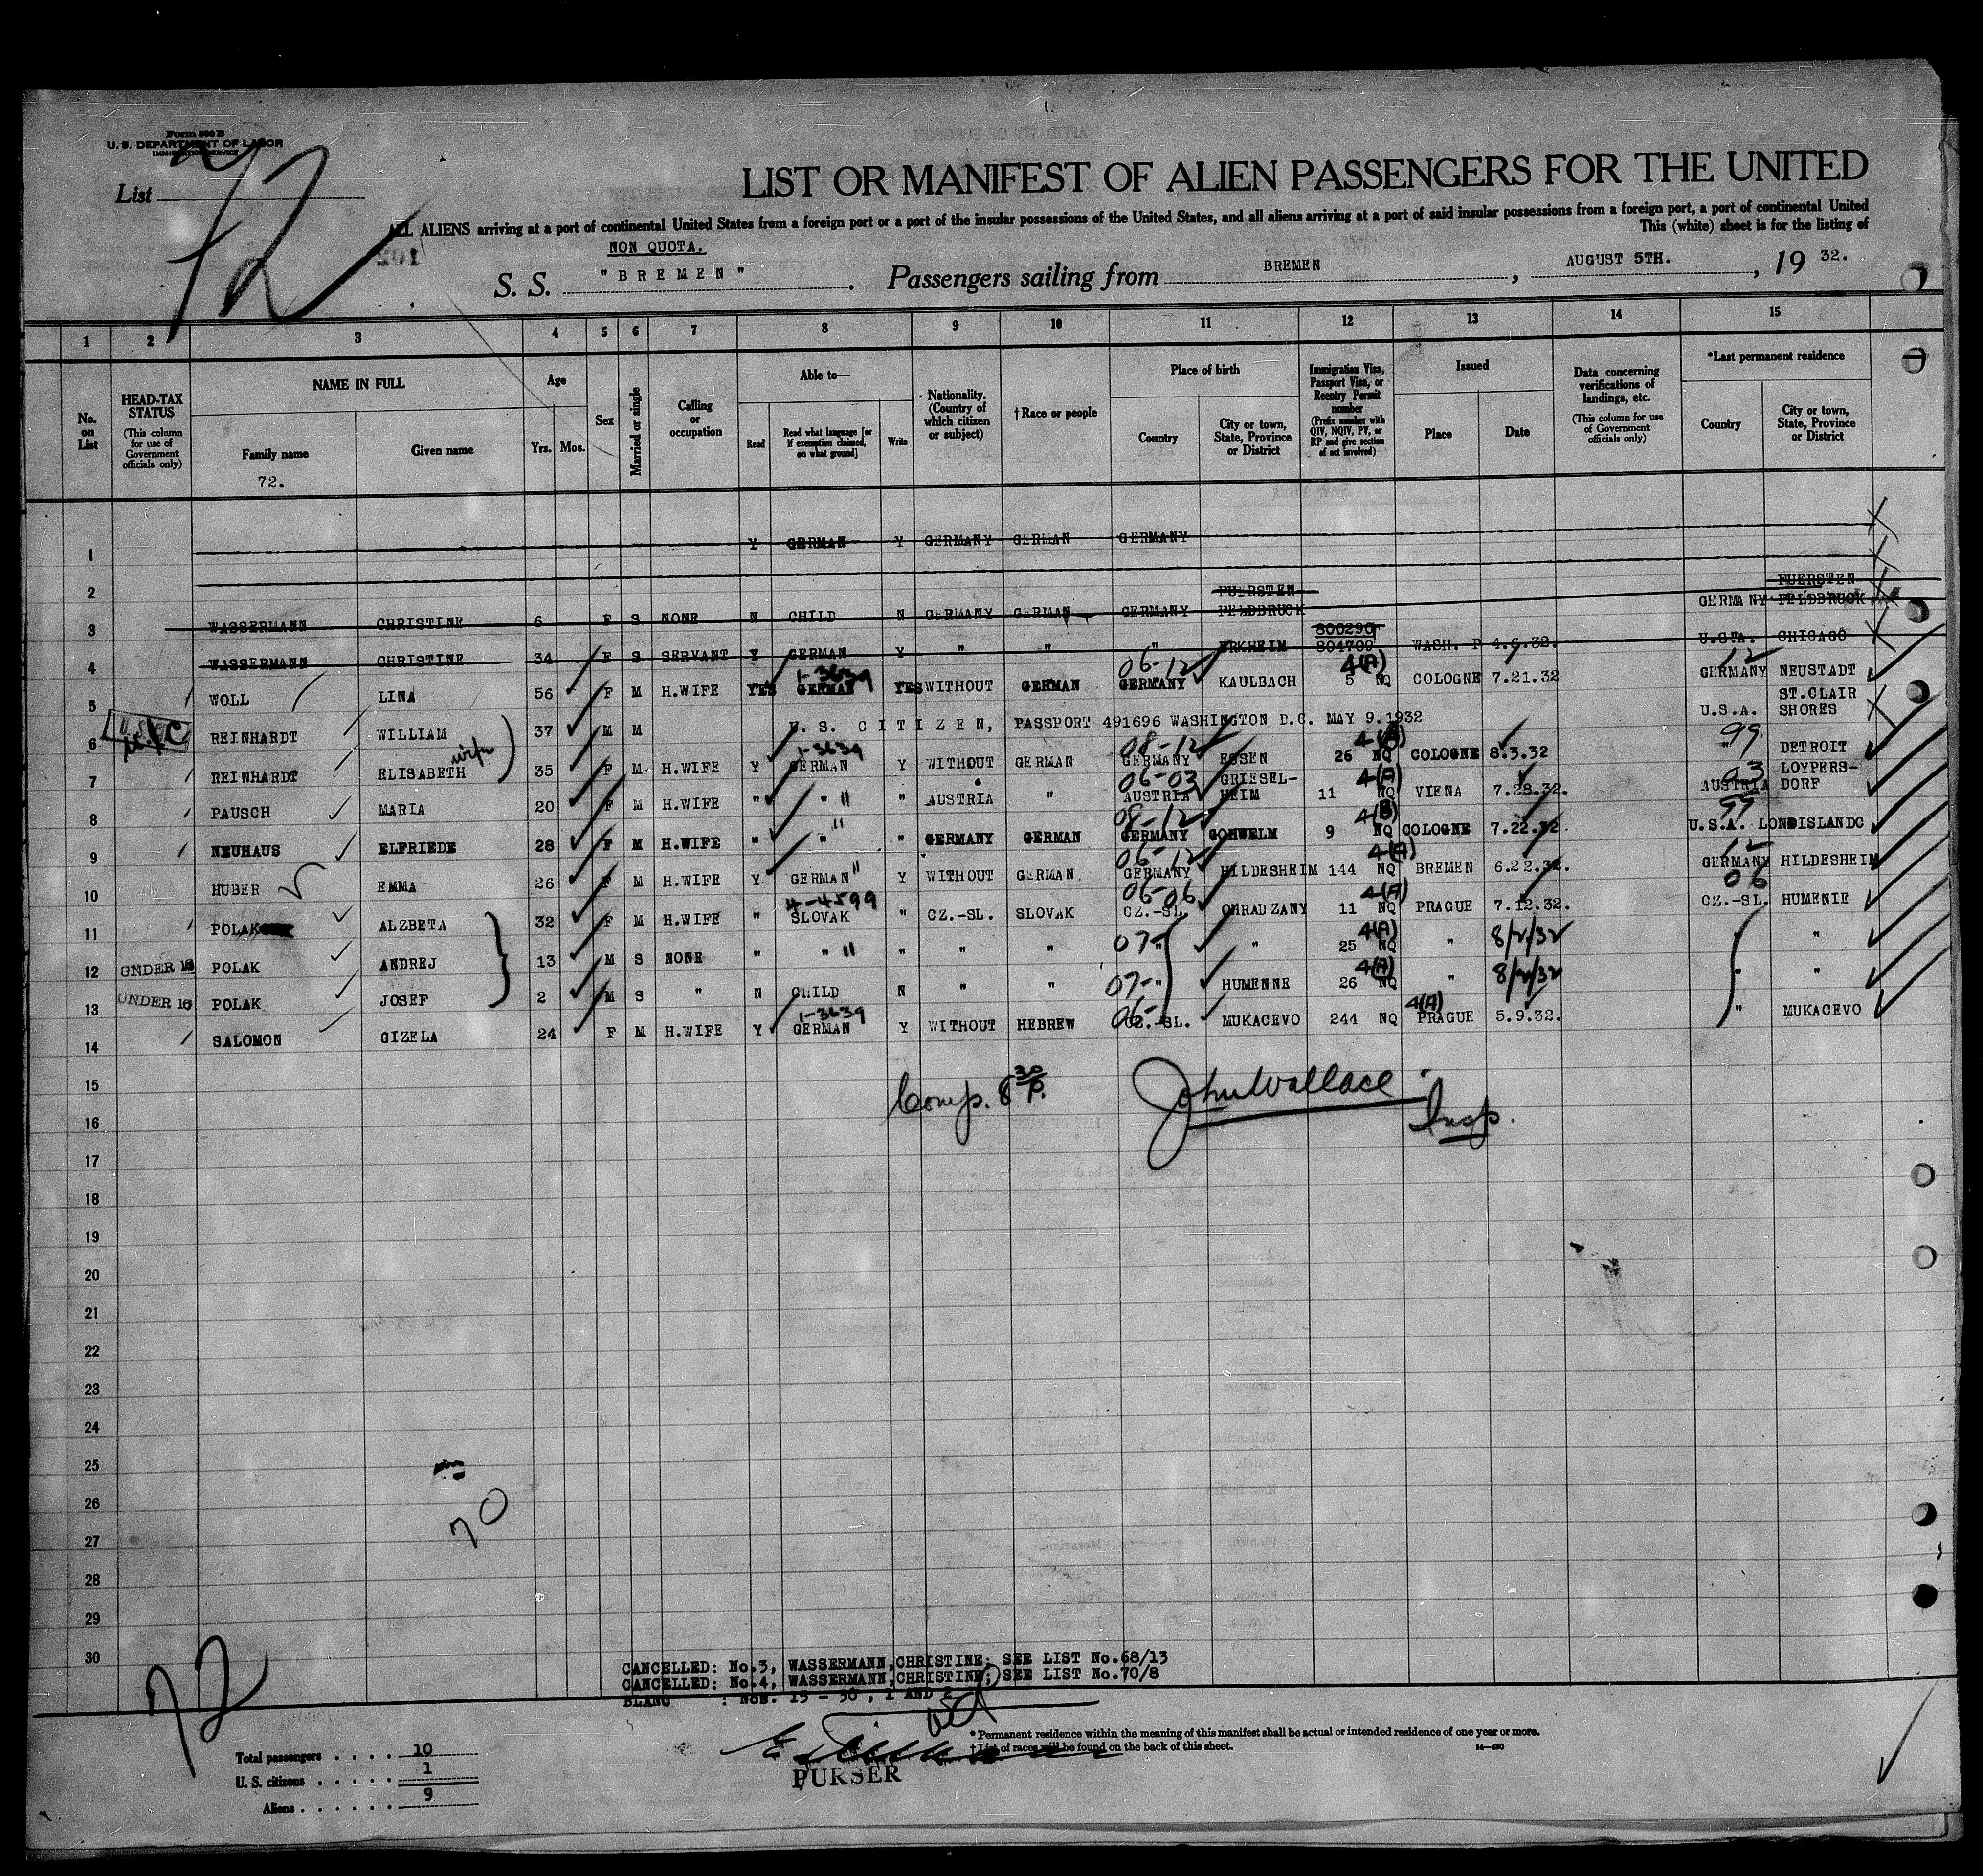 Form 500 B
U. S. DEPARTMENT OF LABOR
IMMIGRATION SERVICE
List
72
LIST OR MANIFEST OF ALIEN PASSENGERS FOR THE UNITED
ALL ALIENS arriving at a port of continental United States from a foreign port or a port of the insular possessions of the United States, and all aliens arriving at a port of said insular possessions from a foreign port, a port of continental United
This (white) sheet is for the listing of
NON QUOTA.
S. S. "BREMEN". Passengers sailing from BREMEN, AUGUST 5TH., 19 32.
1 2 3 4 5 6 7 8 9 10 11 12 13 14 15
No. on List
HEAD-TAX STATUS (This column for use of Government officials only)
NAME IN FULL
Family name
Given name
72.
Age
Yrs. Mos.
Sex
Married or single
Calling or occupation
Able to—
Read
Read what language [or if exemption claimed, on what ground]
Write
Nationality. (Country of which citizen or subject)
†Race or people
Place of birth
Country
City or town, State, Province or District
Immigration Visa, Passport Visa, or Reentry Permit number (Prefix number with QIV, NQIV, PV, or RP and give section of act involved)
Issued
Place
Date
Data concerning verifications of landings, etc. (This column for use of Government officials only)
*Last permanent residence
Country
City or town, State, Province or District
1 Y GERMAN Y GERMANY GERMAN GERMANY
2
3 WASSERMANN CHRISTINE 6 F S NONE N CHILD N GERMANY GERMAN GERMANY FUERSTEN FELDBRUCK GERMANY FUERSTEN FELDBRUCK
4 WASSERMANN CHRISTINE 34 F S SERVANT Y GERMAN Y " " " ERKHEIM 800290 804709 WASH. P 4.6.32. U.S.A. CHICAGO
5 WOLL LINA 56 F M H.WIFE YES GERMAN 1-3639 YES WITHOUT GERMAN 06-12 GERMANY KAULBACH 5 NQ 4(A) COLOGNE 7.21.32 12 GERMANY NEUSTADT
6 REINHARDT WILLIAM 37 M M U.S. CITIZEN, PASSPORT 491696 WASHINGTON D.C. MAY 9.1932 U.S.A. ST.CLAIR SHORES
7 REINHARDT ELISABETH wife 35 F M H.WIFE Y GERMAN 1-3639 Y WITHOUT GERMAN 08-12 GERMANY ESSEN 26 NQ COLOGNE 8.3.32 99 " DETROIT
8 PAUSCH MARIA 20 F M H.WIFE " " " AUSTRIA " 06-03 AUSTRIA GRIESEL- HEIM 11 NQ 4(A) VIENA 7.28.32. 03 AUSTRIA LOYPERS- DORF
9 NEUHAUS ELFRIEDE 28 F M H.WIFE " " " GERMANY GERMAN 08-12 GERMANY GOHWELM 9 NQ 4(B) COLOGNE 7.22.32 99 U.S.A. LONDISLANDC
10 HUBER EMMA 26 F M H.WIFE Y GERMAN " Y WITHOUT GERMAN 06-12 GERMANY HILDESHEIM 144 NQ 4(A) BREMEN 6.22.32. 12 GERMANY HILDESHEIM
11 POLAK ALZBETA 32 F M H.WIFE " SLOVAK 4-4599 " CZ.-SL. SLOVAK 06-06 CZ.-SL. OHRADZANY 11 NQ 4(A) PRAGUE 7.12.32. 06 CZ.-SL. HUMENIE
12 UNDER 16 POLAK ANDREJ 13 M S NONE " " " " " 07- " " 25 NQ 4(A) " 8/2/32 " "
13 UNDER 16 POLAK JOSEF 2 M S " N CHILD N " " 07- " HUMENNE 26 NQ 4(A) " 8/2/32 " "
14 SALOMON GIZELA 24 F M H.WIFE Y GERMAN 1-3639 Y WITHOUT HEBREW 06- CZ.-SL. MUKACEVO 244 NQ 4(A) PRAGUE 5.9.32. " MUKACEVO
15
Comp. 8 30 P. John Wallace Insp.
16
17
18
19
20
21
22
23
24
25
26
70
27
28
29
30
72
CANCELLED: No.3, WASSERMANN, CHRISTINE; SEE LIST No.68/13
CANCELLED: No.4, WASSERMANN, CHRISTINE; SEE LIST No.70/8
BLANC : Nos. 15 - 30, 1 AND 2
PURSER
*Permanent residence within the meaning of this manifest shall be actual or intended residence of one year or more.
†List of races will be found on the back of this sheet.
Total passengers . . . . 10
U. S. citizens . . . . . 1
Aliens . . . . . . 9